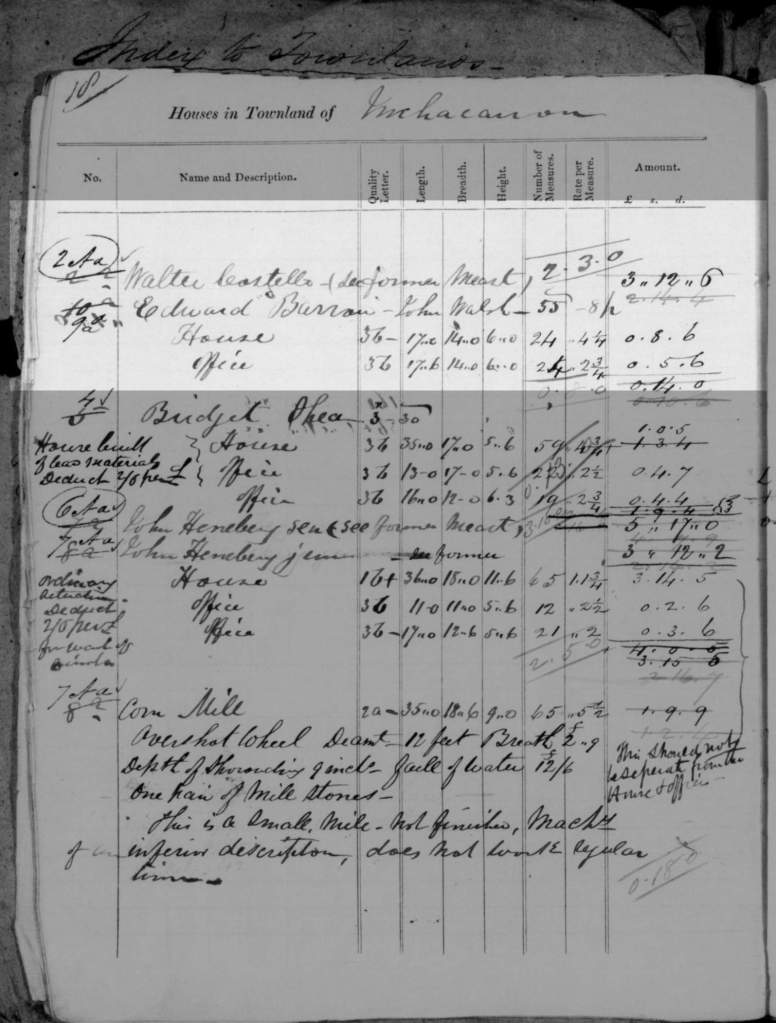 Index to Townlands
18
Houses in Townland of
No. Name and Description. Quality Letter. Length. Breadth. Height. Number of Measures. Rate per Measure. Amount.
£ s. d.
2 Aa
Walter Costello (see former Meast, 2.3.0 3 " 12 " 6
2.14.4
9a Edward Barron - John Walsh - 55 - 8/2
House 3b - 17.0 14.0 6.0 24 .4 1/4 0.8.6
office 3b 17.6 14.0 6.0 24 .2 3/4 0.5.6
0.14.0
Bridget Shea
1.0.5
House built House 3b 35.0 17.0 5.6 59 1.3.4
of bad materials office 3b 13.0 17.0 5.6 .2 1/2 0.4.7
Deduct 2/6 per £
office 3b 16.0 12.0 6.3 19 .2 3/4 0.4.4
1.9.4
6 Aa John Heneberg sen (see former Meast, 5 " 17 " 0
7 Aa John Heneberg jun former 3 " 12 " 2
8a
ordinary House 1b+ 36.0 18.0 11.6 65 1.1 3/4 3.14.5
situation office 3b 11.0 11.0 5.6 12 .2 1/2 0.2.6
Deduct
2/6 per £ office 3b - 17.0 12.6 5.6 21 " 2 0.3.6
for want of 2.5.0 4.0.5
3.15.6
7 Aa
8a Corn Mill 2a - 35.0 18.6 9.0 65 .5 1/2 1.9.9
Overshot Wheel Diamt - 12 feet Breath 2 " 9
Depth of Shrouding 9 inch - faill of water 12/6
One pair of Mill Stones -
This should not
be seperate from the
House & offices
This is a small Mile - not finished, Machy
of an inferior discription, does not work regular
time -
0.18.0